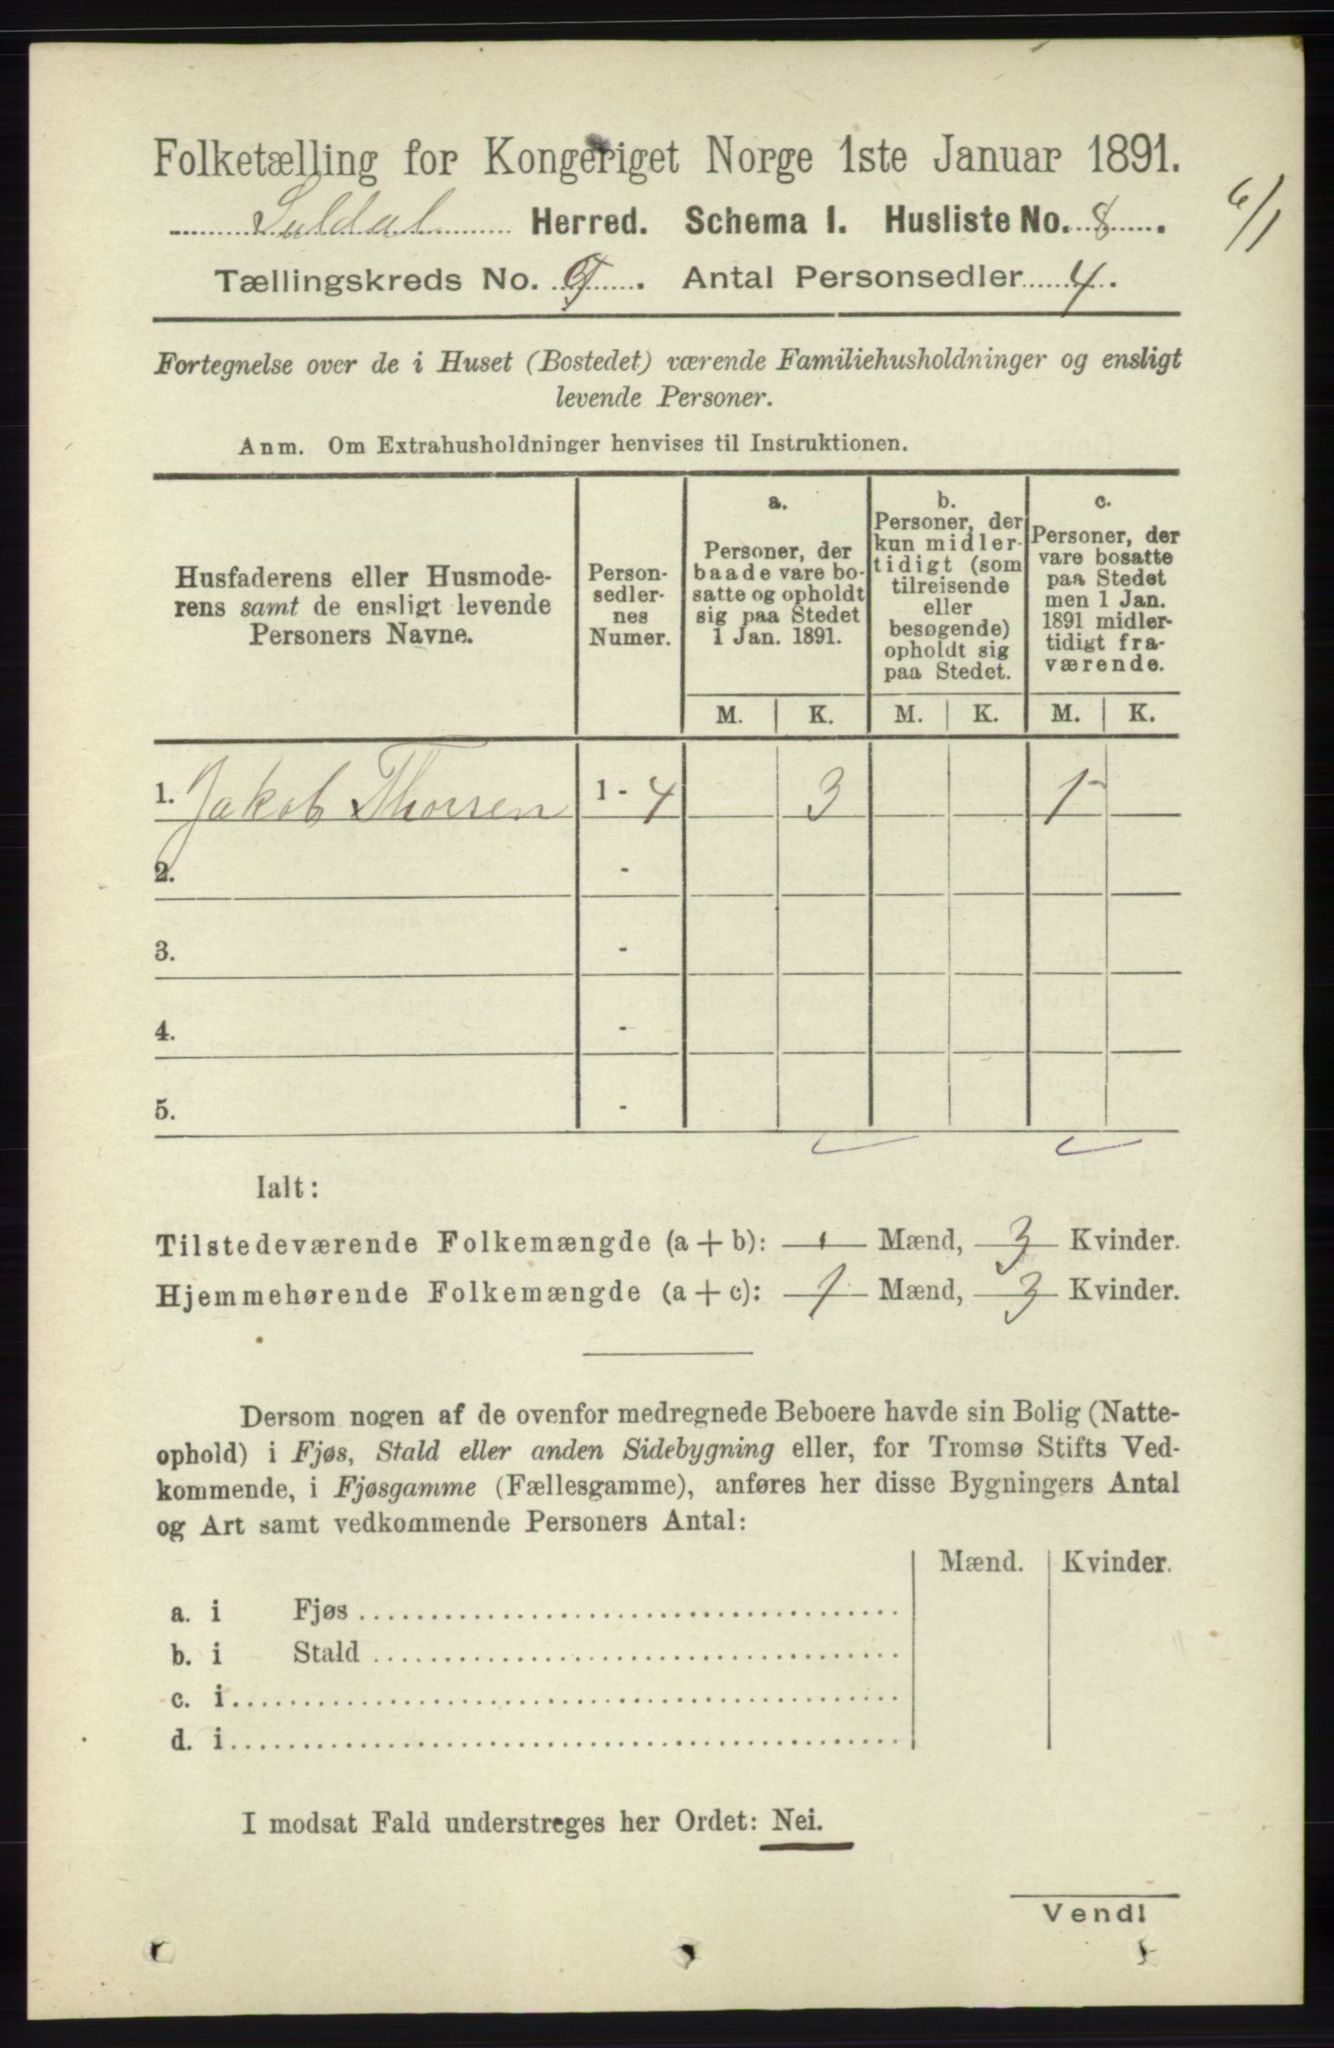 Folketælling for Kongeriget Norge 1ste Januar 1891.
Suldal Herred. Schema I. Husliste No. 8.
6/1
Tællingskreds No. 9. Antal Personsedler 4.
Fortegnelse over de i Huset (Bostedet) værende Familiehusholdninger og ensligt
levende Personer.
Anm. Om Extrahusholdninger henvises til Instruktionen.
Husfaderens eller Husmode-
rens samt de ensligt levende
Personers Navne.
Person-
sedler-
nes
Numer.
a.
Personer, der
baade vare bo-
satte og opholdt
sig paa Stedet
1 Jan. 1891.
b.
Personer, der
kun midler-
tidigt (som
tilreisende
eller
besøgende)
opholdt sig
paa Stedet.
c.
Personer, der
vare bosatte
paa Stedet
men 1 Jan.
1891 midler-
tidigt fra-
værende.
M. K. M. K. M. K.
1. Jakob Thorsen 1 - 4 3 1
2. -
3. -
4. -
5. -
Ialt:
Tilstedeværende Folkemængde (a + b): Mænd, 3 Kvinder.
Hjemmehørende Folkemængde (a + c): 1 Mænd, 3 Kvinder.
Dersom nogen af de ovenfor medregnede Beboere havde sin Bolig (Natte-
ophold) i Fjøs, Stald eller anden Sidebygning eller, for Tromsø Stifts Ved-
kommende, i Fjøsgamme (Fællesgamme), anføres her disse Bygningers Antal
og Art samt vedkommende Personers Antal:
Mænd. Kvinder.
a. i Fjøs
b. i Stald
c. i
d. i
I modsat Fald understreges her Ordet: Nei.
Vend!